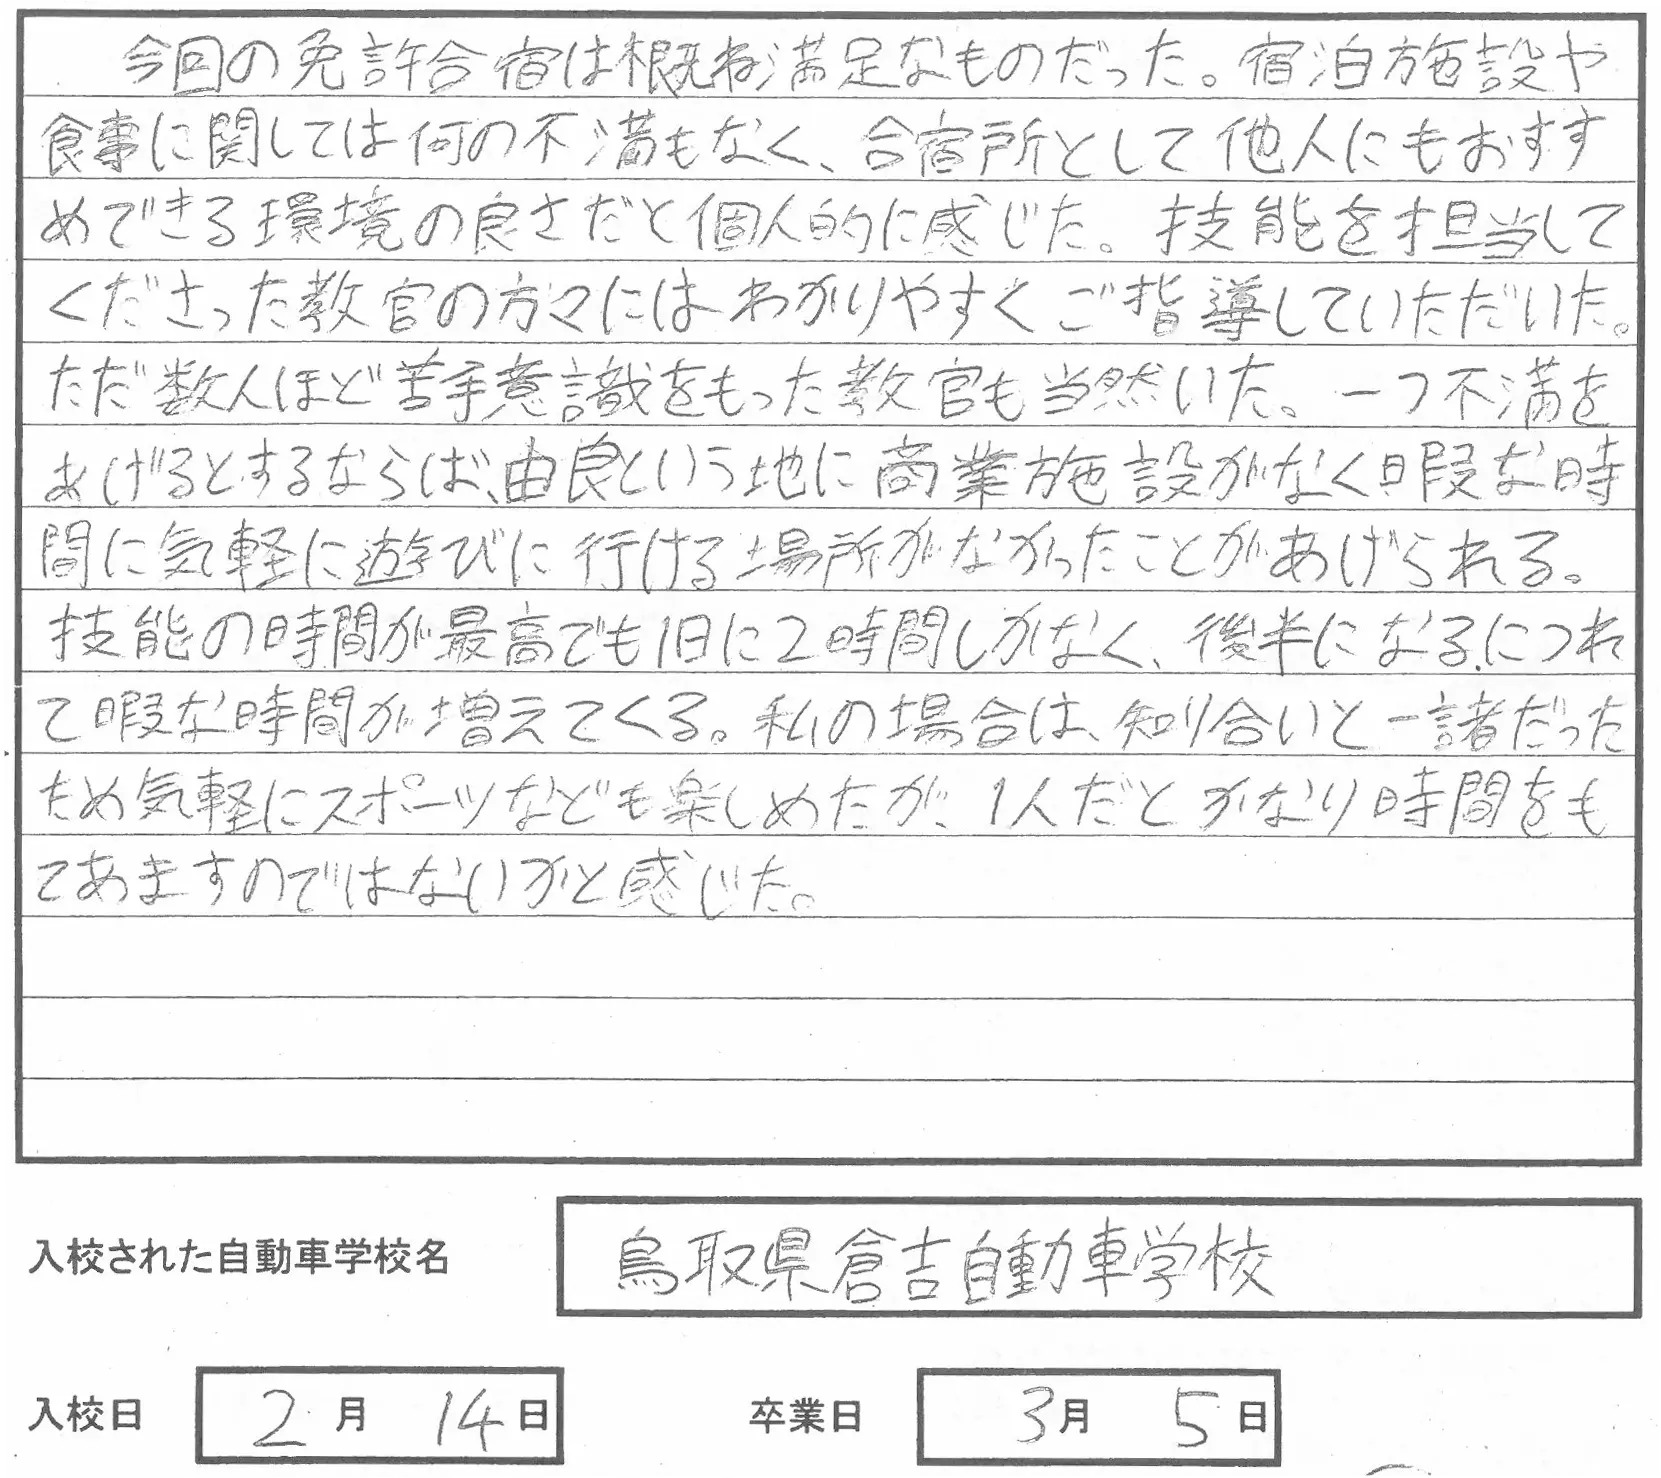 今回の免許合宿は概ね満足なものだった。宿泊施設や
食事に関しては何の不満もなく、合宿所として他人にもおすす
めできる環境の良さだと個人的に感じた。技能を担当して
くださった教官の方々にはわかりやすくご指導していただいた。
ただ数人ほど苦手意識をもった教官も当然いた。一つ不満を
あげるとするならば、由良という地に商業施設がなく暇な時
間に気軽に遊びに行ける場所がなかったことがあげられる。
技能の時間が最高でも1日に2時間しかなく、後半になるにつれ
て暇な時間が増えてくる。私の場合は、知り合いと一諸だった
ため気軽にスポーツなども楽しめたが、1人だとかなり時間をも
てあますのではないかと感じた。
入校された自動車学校名 鳥取県倉吉自動車学校
入校日 2月14日 卒業日 3月5日